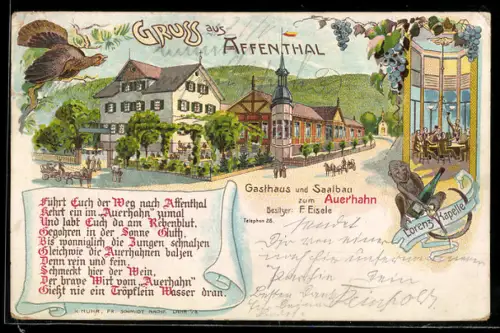 Gruss aus
Affenthal
Gasthaus und Saalbau
zum Auerhahn
Besitzer: F. Eisele
Telephon 28.
Lorenz Kapelle
Führt Euch der Weg nach Affenthal
Kehrt ein im „Auerhahn“ zumal
Und labt Euch da am Rebenblut,
Gegohren in der Sonne Gluth,
Bis wonniglich die Zungen schnalzen
Gleichwie die Auerhahnen balzen
Denn rein und fein,
Schmeckt hier der Wein.
Der brave Wirt vom „Auerhahn“
Gießt nie ein Tröpflein Wasser dran.
Sendet
Dir von einer
Partie
Besten